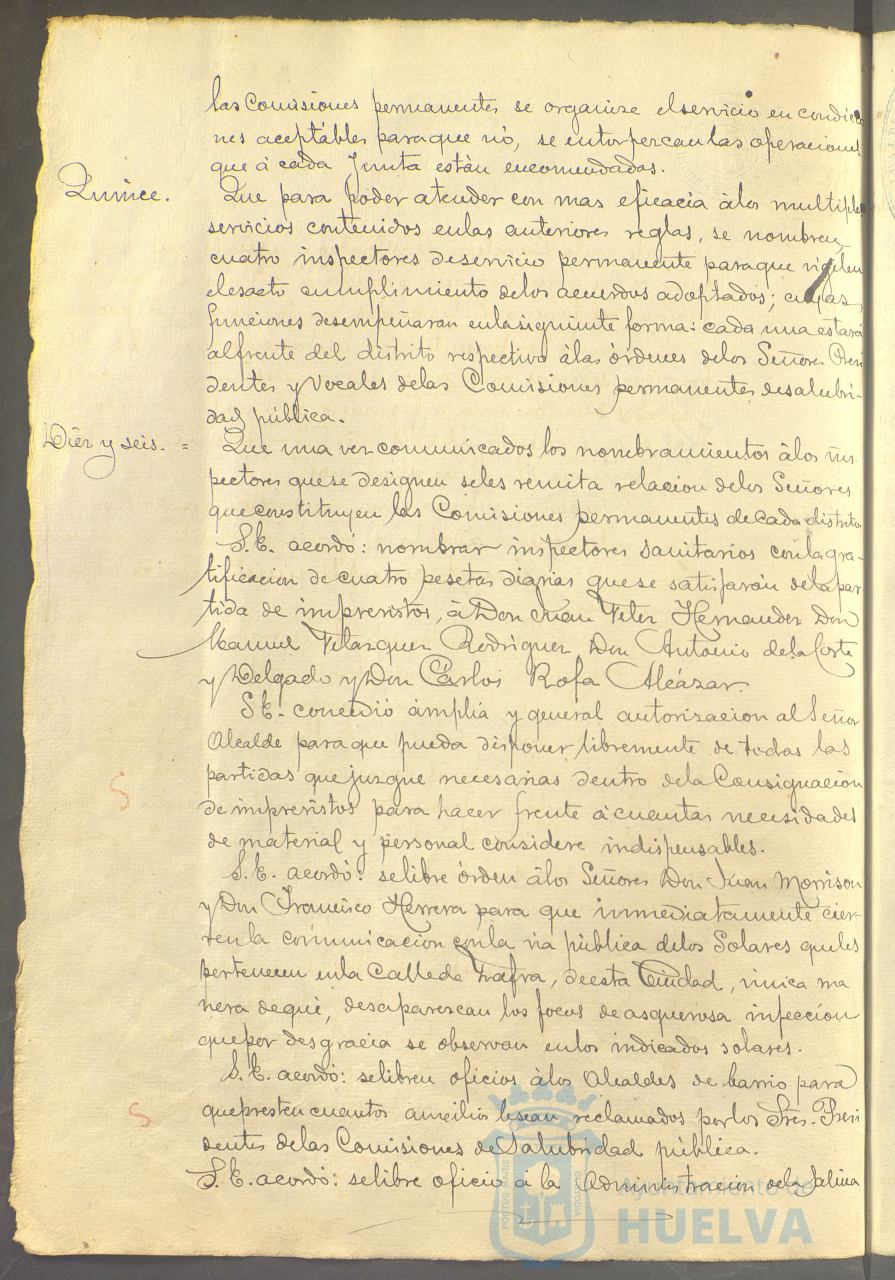 las Comisiones permanentes se organize el servicio en condicio
nes aceptables para que nó, se entorpercan las operaciones
que á cada Junta están encomendadas.
Quince. Que para poder atender con mas eficacia álos multiples
servicios contenidos enlas anteriores reglas, se nombren
cuatro inspectores deservicio permanente paraque vigilen
elesacto cumplimiento delos acuerdos adoptados; cuyas
funciones desempeñaran enlasiguiente forma: cada una estará
alfrente del distrito respectivo álas órdenes delos Señores Presi
dentes y Vocales delas Comisiones permanentes desalubri-
dad pública.
Diez y seis. = Que una vez comunicados los nombramientos álos ins
pectores quese designen seles remita relacion delos Señores
queconstituyen las Comisiones permanentes decada distrito
S.E. acordó: nombrar inspectores sanitarios conlagra-
tificacion de cuatro pesetas diarias quese satisfarán delapar
tida de imprevistos, á Don Juan Hernandez Don
Manuel Velazquez Rodriguez Don Antonio dela Corte
y Delgado y Don Cárlos Rofa Alcázar.
S.E. concedió ámplia y general autorizacion al Señor
Alcalde para que pueda disponer libremente de todas las
partidas que juzgue necesarias dentro dela Consignacion
de imprevistos para hacer frente ácuantas necesidades
de material y personal considere indispensables.
S.E. acordó: selibre órden álos Señores Don Juan Morrison
y Don Francisco Herrera para que inmediatamente cier-
ren la comunicacion conla via pública delos Solares queles
pertenecen enla Callede Zafra, deesta Ciudad, única ma
nera dequé, desaparezcan los focos de asquerosa infección
quepor desgracia se observan enlos indicados solares.
S.E. acordó: selibren oficios álos Alcaldes de barrio para
quepresten cuantos auxilios lesean reclamados porlos Sres. Presi
dentes delas Comisiones de Salubridad pública.
S.E. acordó: selibre oficio á la Administracion dela Salina
Ayuntamiento de
HUELVA